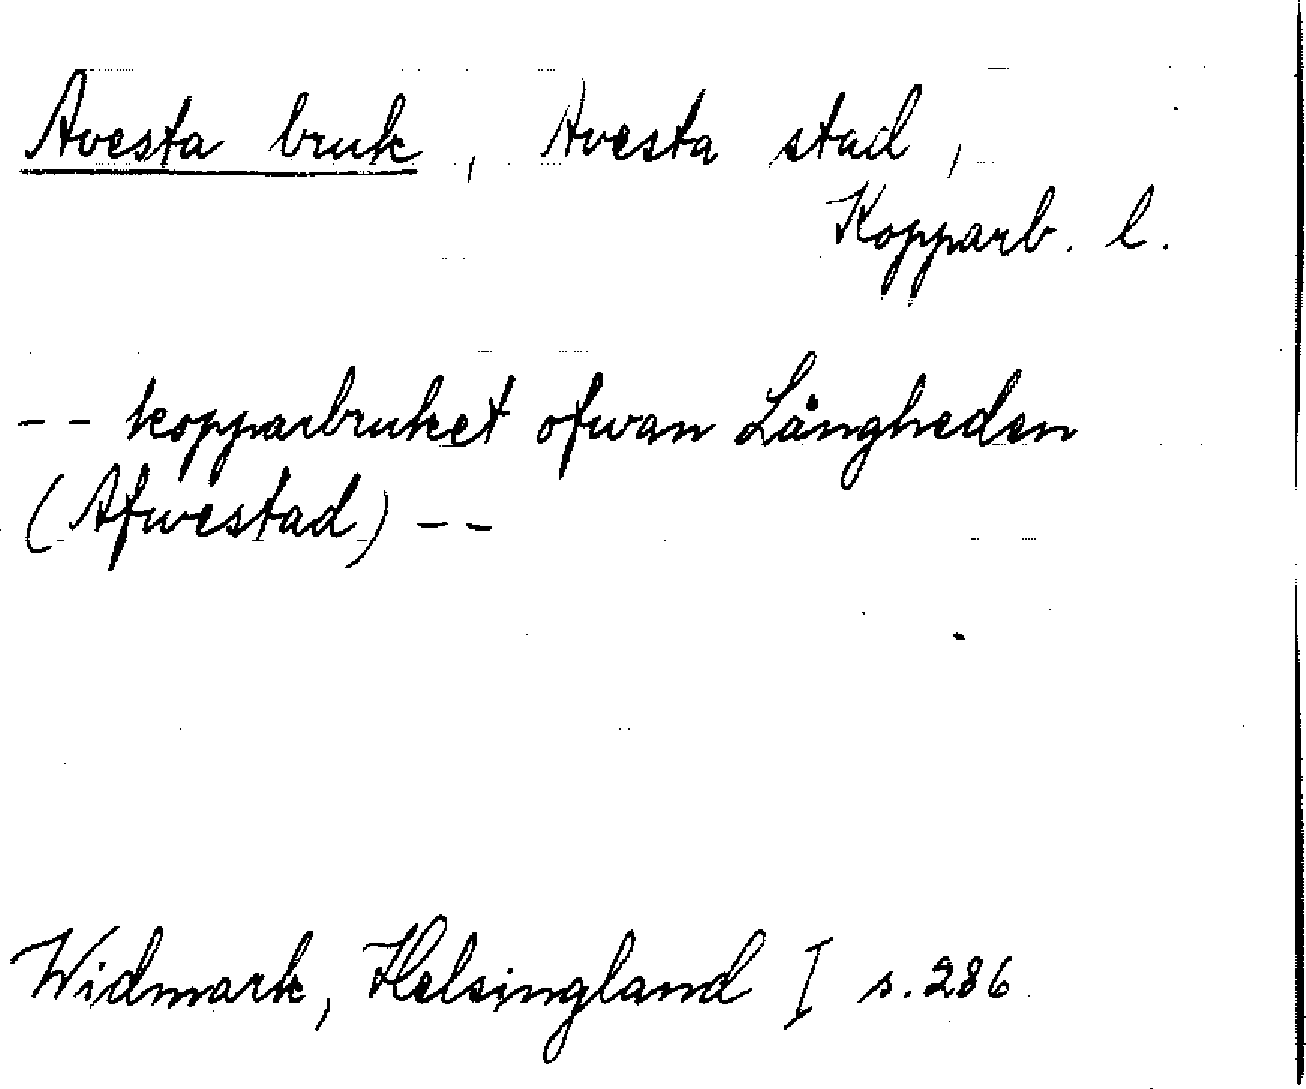 Avesta bruk, Avesta stad,
Kopparb. l.
-- kopparbruket ofwan Långheden
(Afwestad) --
Widmark, Helsingland I s. 286